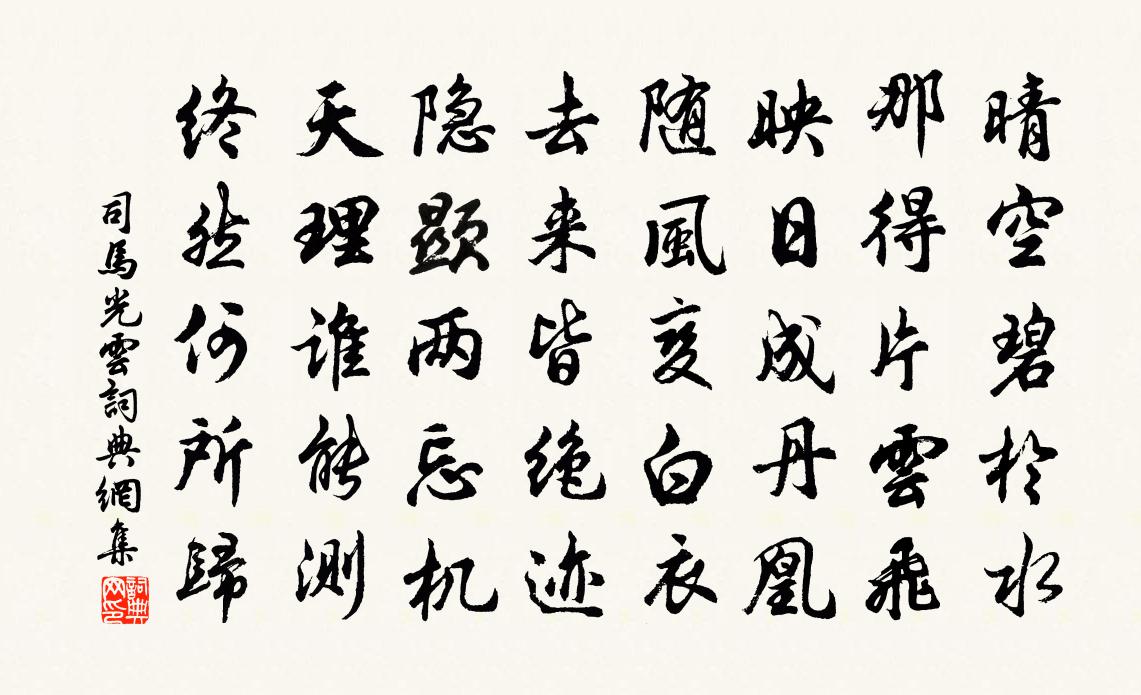 晴空碧於水
那得片雲飛
映日成丹凰
随風变白衣
去来皆绝迹
隐顯两忘机
天理谁能測
终然何所歸
司馬光雲詞典網集
詞典网印